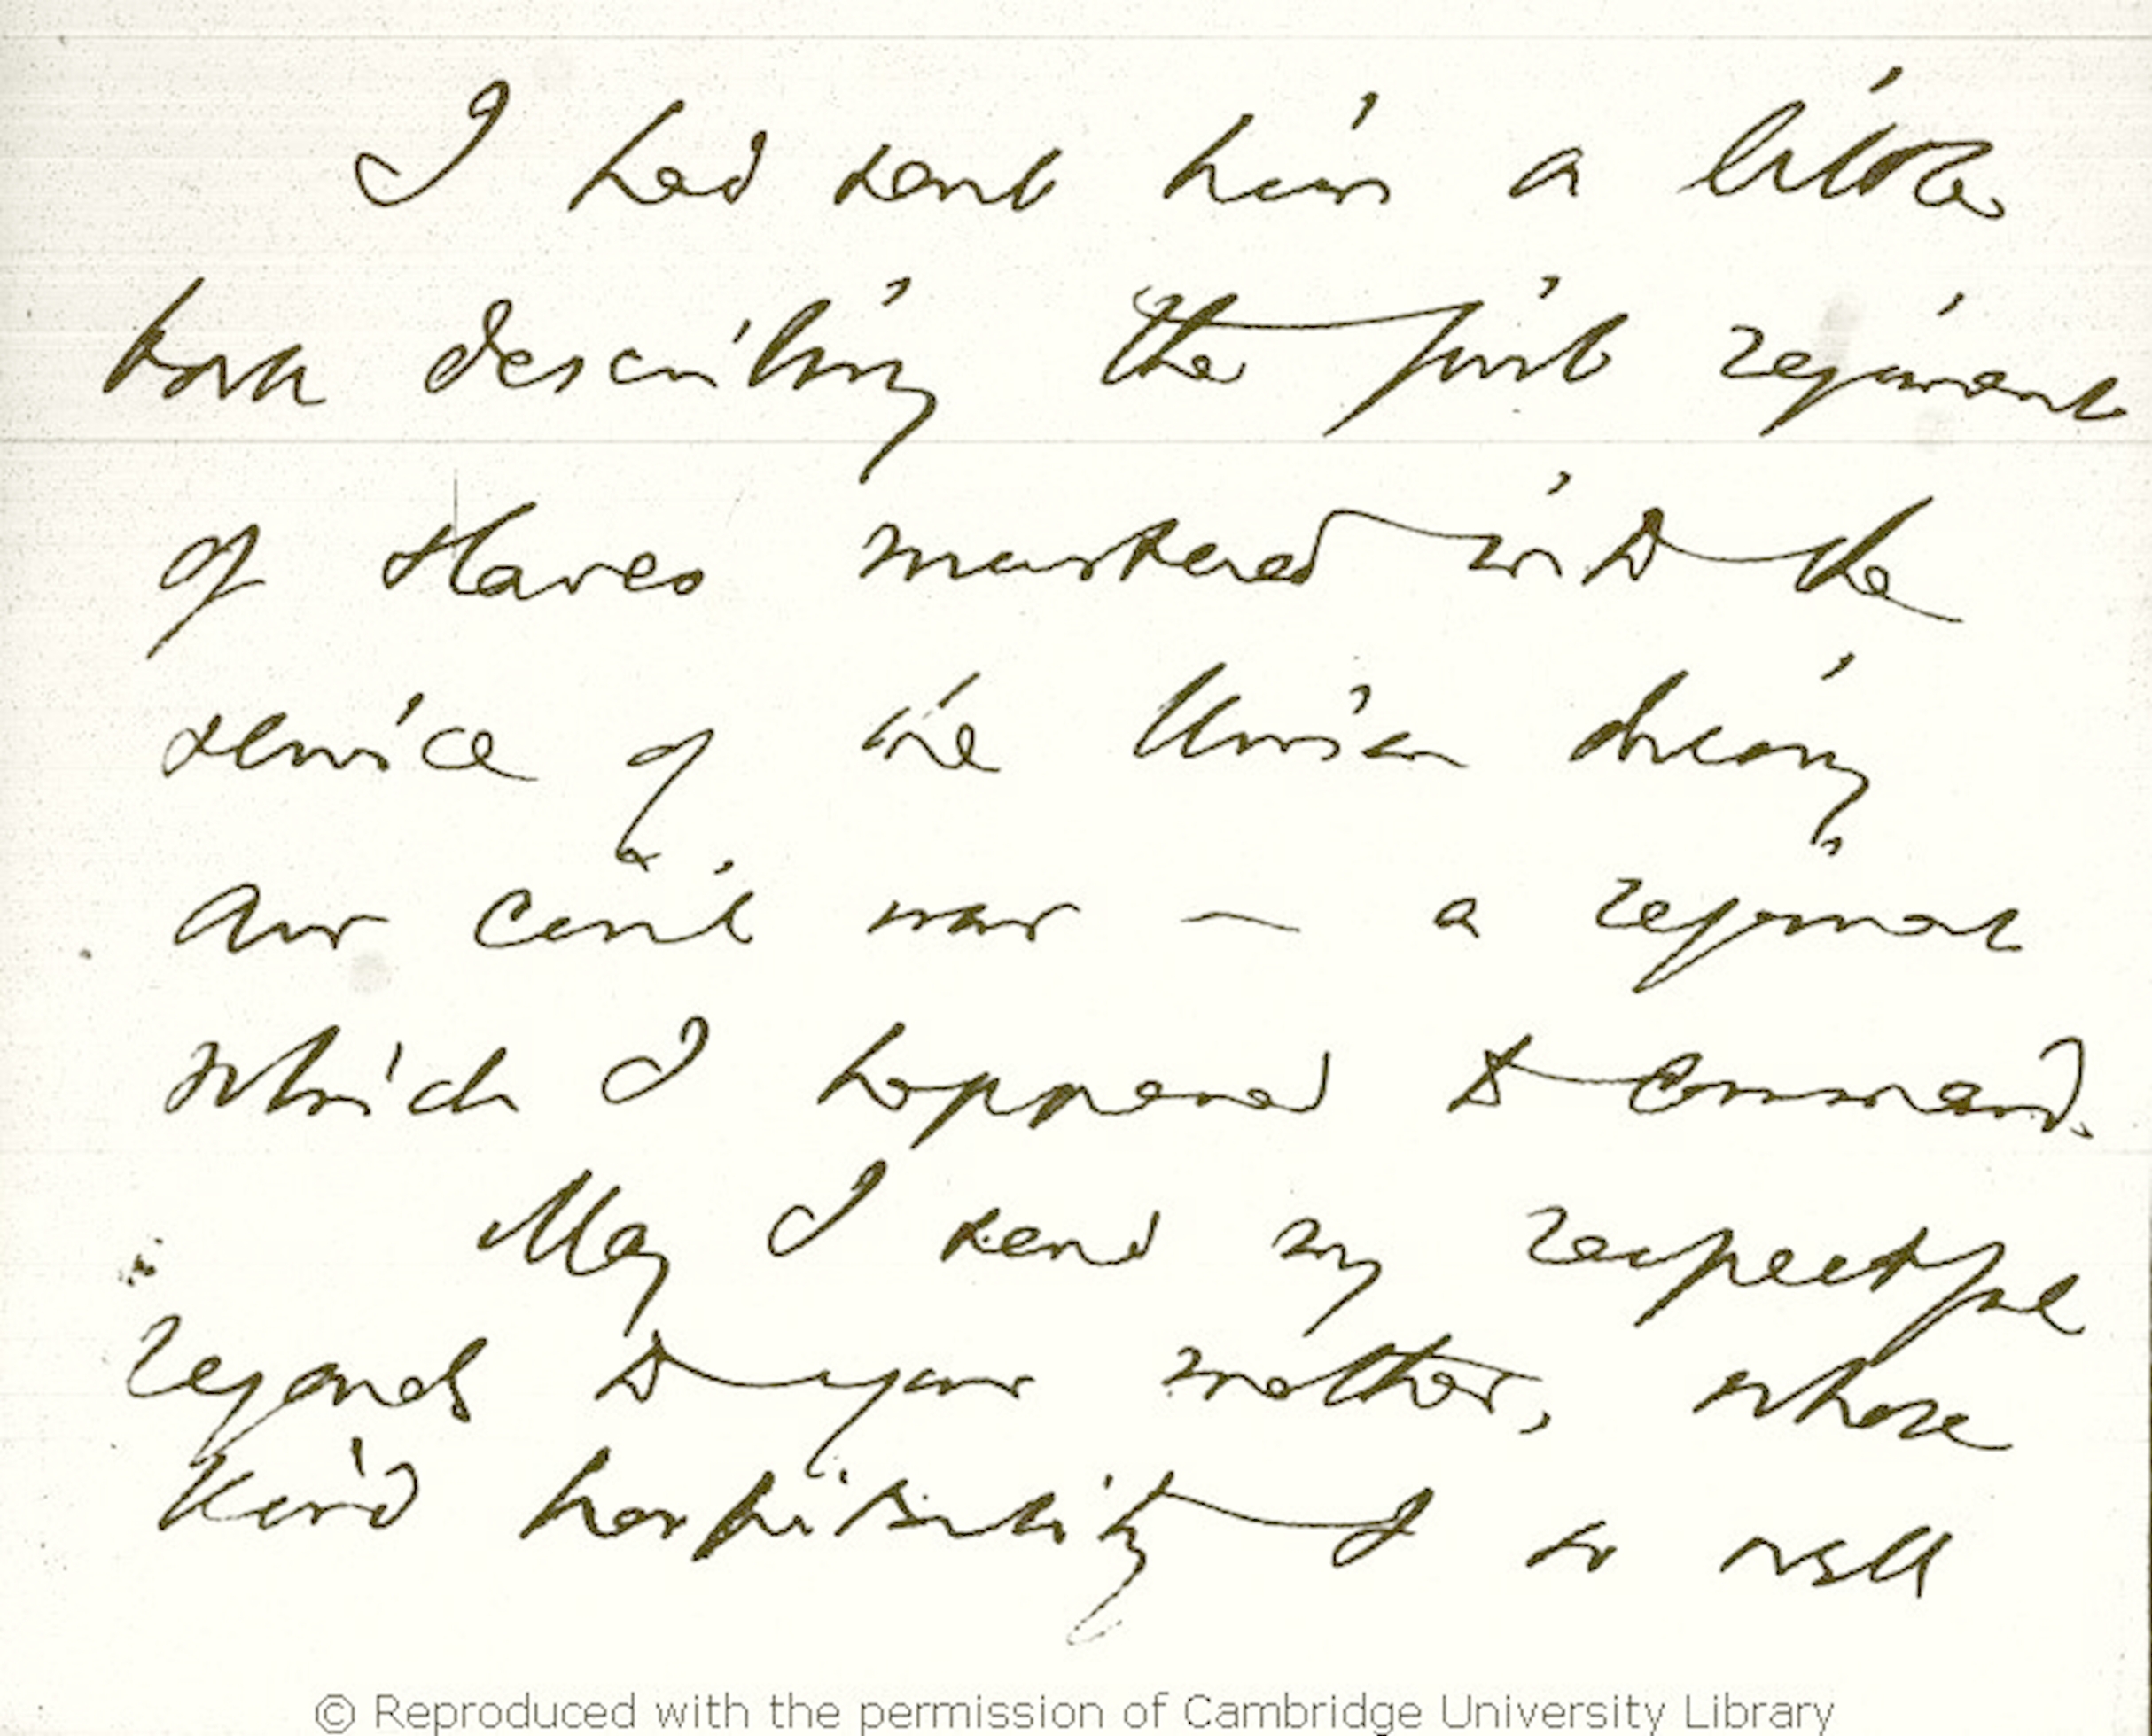 I had sent him a little
book describing the first regiment
of slaves mustered into the
service of the Union during
our civil war — a regiment
which I happened to command.
May I send my respectful
regards to your mother, whose
kind hospitality I so well
© Reproduced with the permission of Cambridge University Library